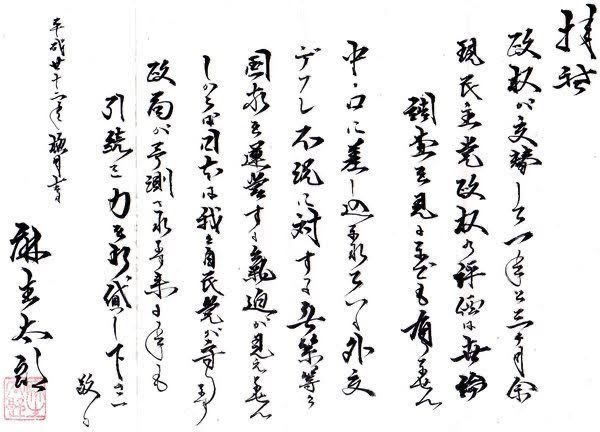 拝啓
政権が交替して一年と三ヶ月余
現民主党政権の評価は世論
調査を見るまでも有りません
中・ロに差し込まれている外交
デフレ不況に対する無策等々
国家を運営する気迫が見えません
日本は我が自民党が守る
政局が予測される来る年も
引続き力を御貸し下さい
敬具
平成廿十二年 極月吉日
麻生太郎